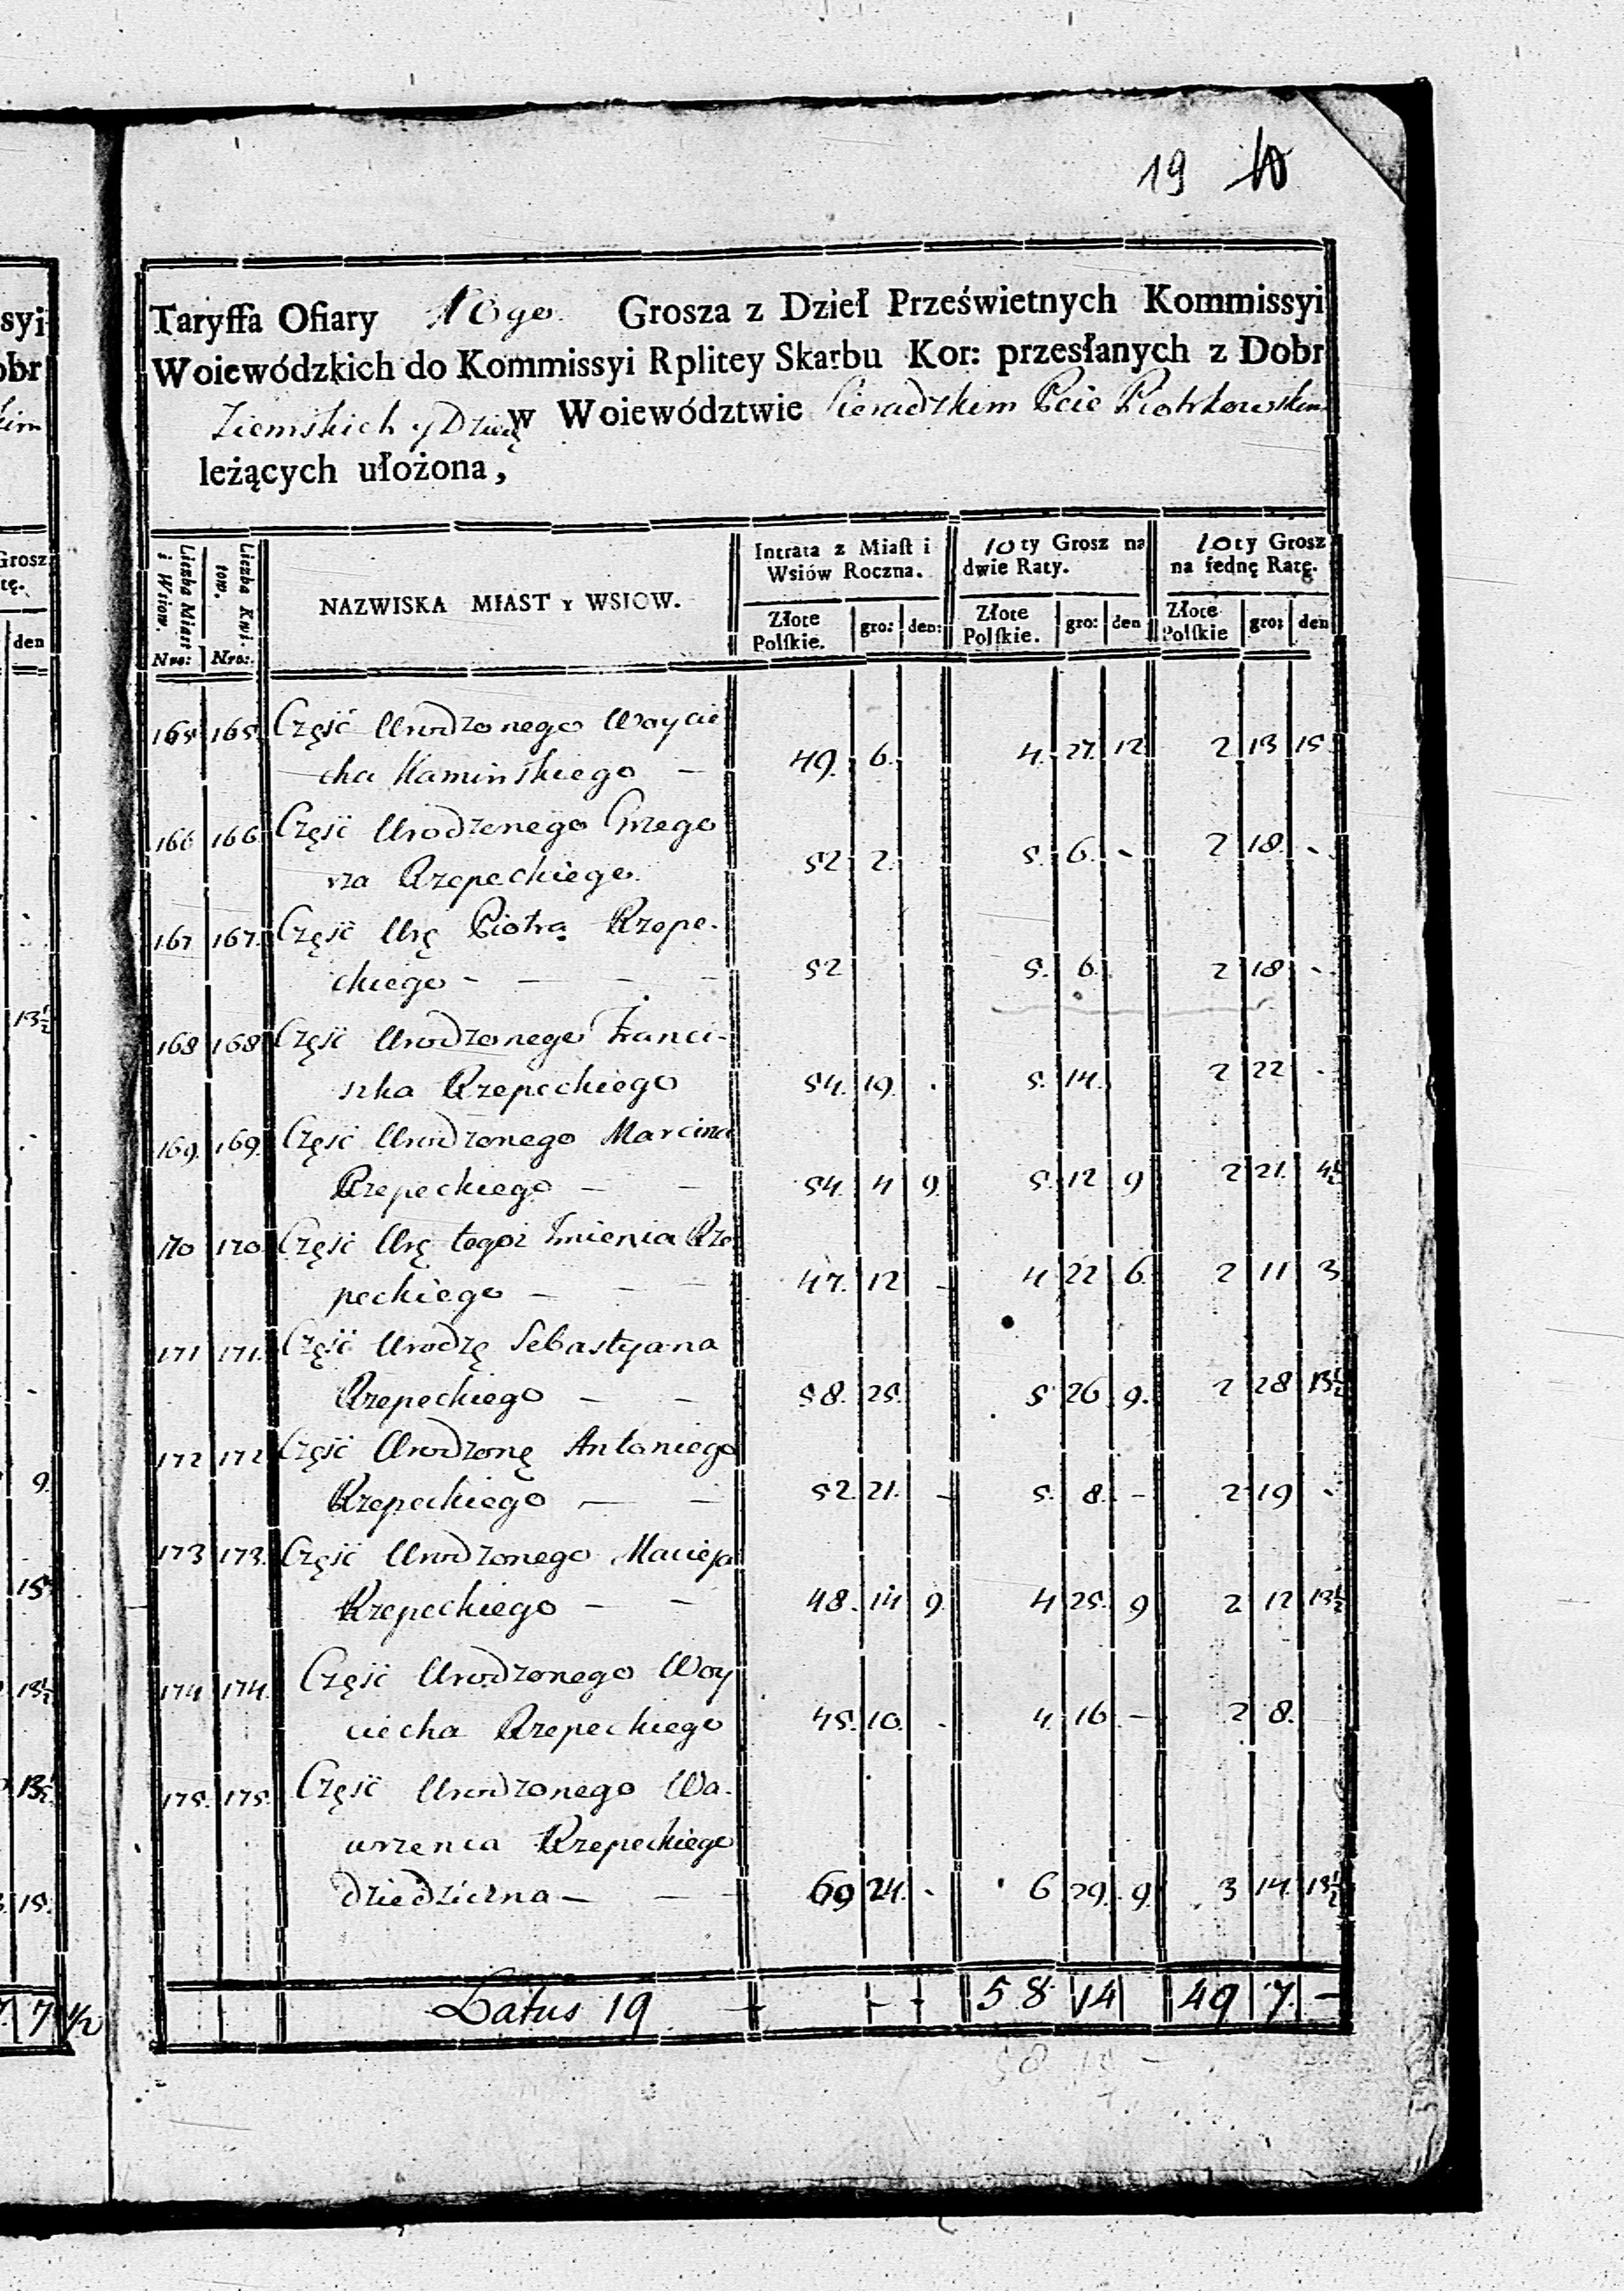 19 10
Taryffa Ofiary 10go Grosza z Dzieł Prześwietnych Kommissyi
Woiewódzkich do Kommissyi Rplitey Skarbu Kor: przesłanych z Dobr
Ziemskich y w Woiewództwie Sieradzkim Pcie Piotrkowskim
leżących ułożona,
Liczba Miast i Wsiow. Liczba Kwitow. NAZWISKA MIAST Y WSIOW. Intrata z Miast i Wsiów Roczna. 10ty Grosz na dwie Raty. 10ty Grosz na iednę Ratę.
Nro: Nro: Złote Polskie. gro: den: Złote Polskie. gro: den Złote Polskie gro: den
165 165. Część Urodzonego Woycie
cha Kamińskiego — 49. 6. 4. 27. 12 2 13 15.
166 166 Część Urodzonego Grzego
rza Rzepeckiego. 52 2. 5. 6. - 2 18. -
167 167. Część Urę Piotra Rzepe.
ckiego - — — — 52 5. 6. 2 18 -
168 168 Część Urodzonego Franci-
szka Rzepeckiego 54. 19. . 5. 14. 2 22 -
169. 169. Część Urodzonego Marcina
Rzepeckiego — — 54. 4 9. 5. 12 9 2 21. 4½
170 170 Część Urę tegoż Imienia Rze
peckiego — — — 47. 12 - 4 22 6. 2 11 3
171 171. Część Urodzę Sebastyana
Rzepeckiego — — 58. 25. 5 26 9. 2 28 13½
172 172 Część Urodzonę Antoniego
Rzepeckiego — — 52. 21. - 5. 8. - 2 19 -
173 173. Część Urodzonego Macieja
Rzepeckiego — — 48. 14 9. 4 25. 9 2 12 13½
174 174. Część Urodzonego Woy
ciecha Rzepeckiego 45. 10. . 4. 16 — 2 8.
175. 175. Część Urodzonego Wa.
wrzenca Rzepeckiego
dziedziczna — — — 69 24. - 6 29. 9 3 14. 13½
Latus 19 - - - 58 14 49 7. -